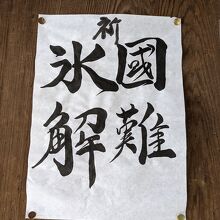 祈
國難
氷解